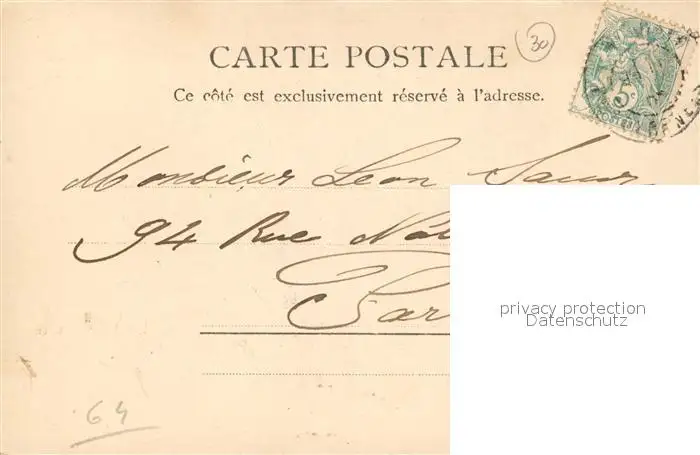 CARTE POSTALE
30
Ce côté est exclusivement réservé à l'adresse.
5c
Monsieur Leon
94 Rue
Par
privacy protection
Datenschutz
64